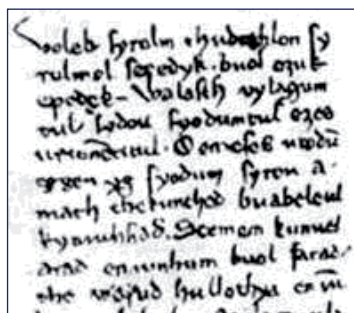 Volek syrolm thudothlon sy
rolmol sepedyk. buol ozuk
epedek. Walasth vylagum
tul sydou fyodumtul ezes
urumemtuul. O en eses urodu
eggen yg fyodum syrou a
niath thekunched buabeleul
kyniuhhad. Scemem kunuel
arad en iunhum buol farad
the werud hullothya en iu